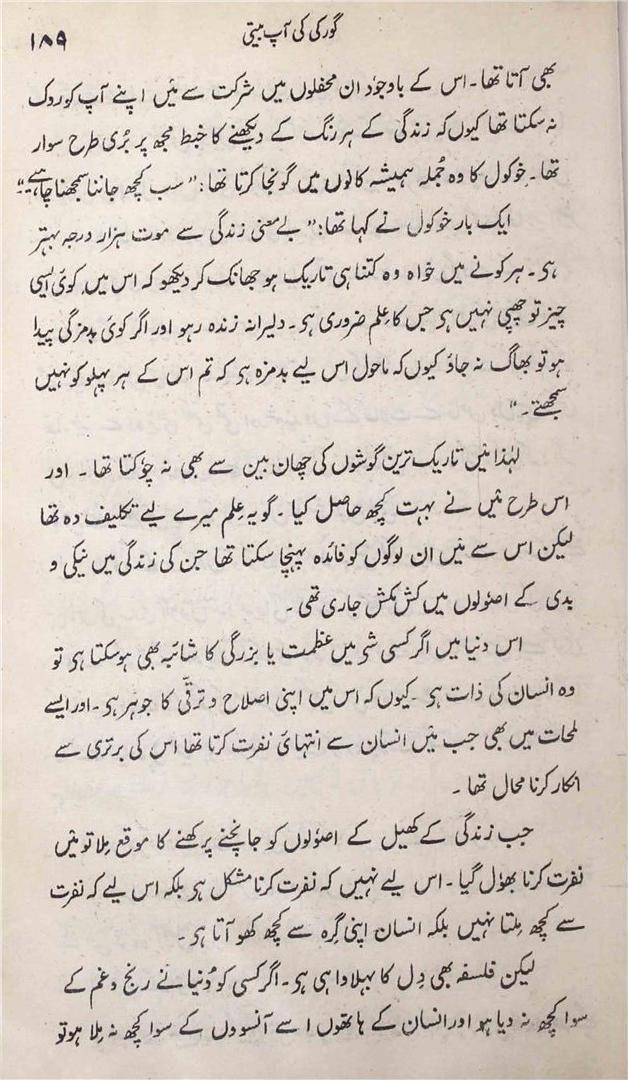 گورکی کی آپ بیتی
۱۸۹
بھی آتا تھا۔ اس کے باوجود ان محفلوں میں شرکت سے مَیں اپنے آپ کو روک
نہ سکتا تھا کیوں کہ زندگی کے ہر رنگ کے دیکھنے کا خبط مجھ پر بُری طرح سوار
تھا۔ خوکول کا وہ جُملہ ہمیشہ کانوں میں گونجا کرتا تھا: ”سب کچھ جاننا سمجھنا چاہیے۔“
ایک بار خوکول نے کہا تھا: ”بے معنی زندگی سے موت ہزار درجہ بہتر
ہی۔ ہر کونے میں خواہ وہ کتنا ہی تاریک ہو جھانک کر دیکھو کہ اس میں کوئی ایسی
چیز تو چھپی نہیں ہی جس کا عِلم ضروری ہی۔ دلیرانہ زندہ رہو اور اگر کوئی بدمزگی پیدا
ہو تو بھاگ نہ جاؤ کیوں کہ ماحول اس لیے بدمزہ ہی کہ تم اس کے ہر پہلو کو نہیں
سمجھتے۔“
لہٰذا مَیں تاریک ترین گوشوں کی چھان بین سے بھی نہ چوٗکتا تھا۔ اور
اس طرح مَیں نے بہت کچھ حاصل کیا۔ گو یہ عِلم میرے لیے تکلیف دہ تھا
لیکن اس سے مَیں ان لوگوں کو فائدہ پہنچا سکتا تھا جن کی زندگی میں نیکی و
بدی کے اصوٗلوں میں کش مکش جاری تھی۔
اس دنیا میں اگر کسی شی میں عظمت یا بزرگی کا شائبہ بھی ہو سکتا ہی تو
وہ انسان کی ذات ہی۔ کیوں کہ اس میں اپنی اصلاح و ترقّی کا جوہر ہی۔ اور ایسے
لمحات میں بھی جب مَیں انسان سے انتہائی نفرت کرتا تھا اس کی برتری سے
انکار کرنا محال تھا۔
جب زندگی کے کھیل کے اصوٗلوں کو جانچنے پرکھنے کا موقع مِلا تو مَیں
نفرت کرنا بھوٗل گیا۔ اس لیے نہیں کہ نفرت کرنا مشکل ہی بلکہ اس لیے کہ نفرت
سے کچھ مِلتا نہیں بلکہ انسان اپنی گِرہ سے کچھ کھو آتا ہی۔
لیکن فلسفہ بھی دِل کا بہلاوا ہی ہی۔ اگر کسی کو دُنیا نے رنج و غم کے
سوا کچھ نہ دیا ہو اور انسان کے ہاتھوں اسے آنسووں کے سوا کچھ نہ مِلا ہو تو